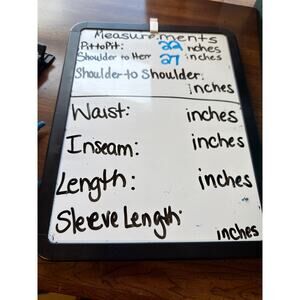 Measurements
Pit to Pit: 22 nches
Shoulder to Hem 27 inches
Shoulder to Shoulder:
inches
Waist: inches
Inseam: inches
Length: inches
Sleeve Length:
inches